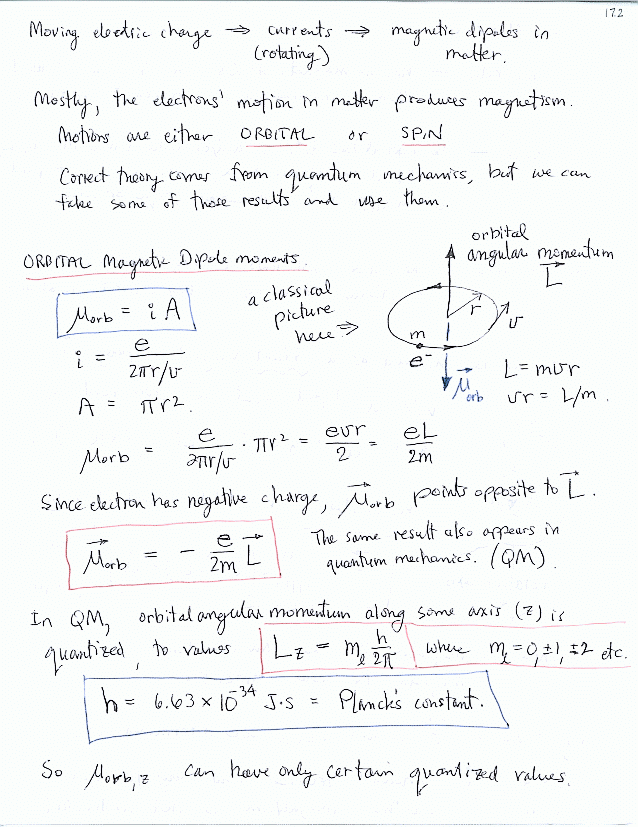 172
Moving electric charge ⇒ currents → magnetic dipoles in
(rotating) matter.
Mostly, the electrons' motion in matter produces magnetism.
Motions are either ORBITAL or SPIN
Correct theory comes from quantum mechanics, but we can
take some of those results and use them.
ORBITAL Magnetic Dipole moments.
orbital
angular momentum
L⃗
μorb = i A
a classical
picture
here ⇒
r
v
m
e⁻
μ⃗orb
i = e / (2πr/v)
A = πr².
L = mvr
vr = L/m.
μorb = e / (2πr/v) · πr² = evr/2 = eL/2m
Since electron has negative charge, μ⃗orb points opposite to L⃗.
μ⃗orb = - e/2m L⃗
The same result also appears in
quantum mechanics. (QM)
In QM, orbital angular momentum along some axis (z) is
quantized, to values Lz = mℓ h/2π where mℓ = 0, ±1, ±2 etc.
h = 6.63 × 10⁻³⁴ J·s = Planck's constant.
So μorb,z can have only certain quantized values.